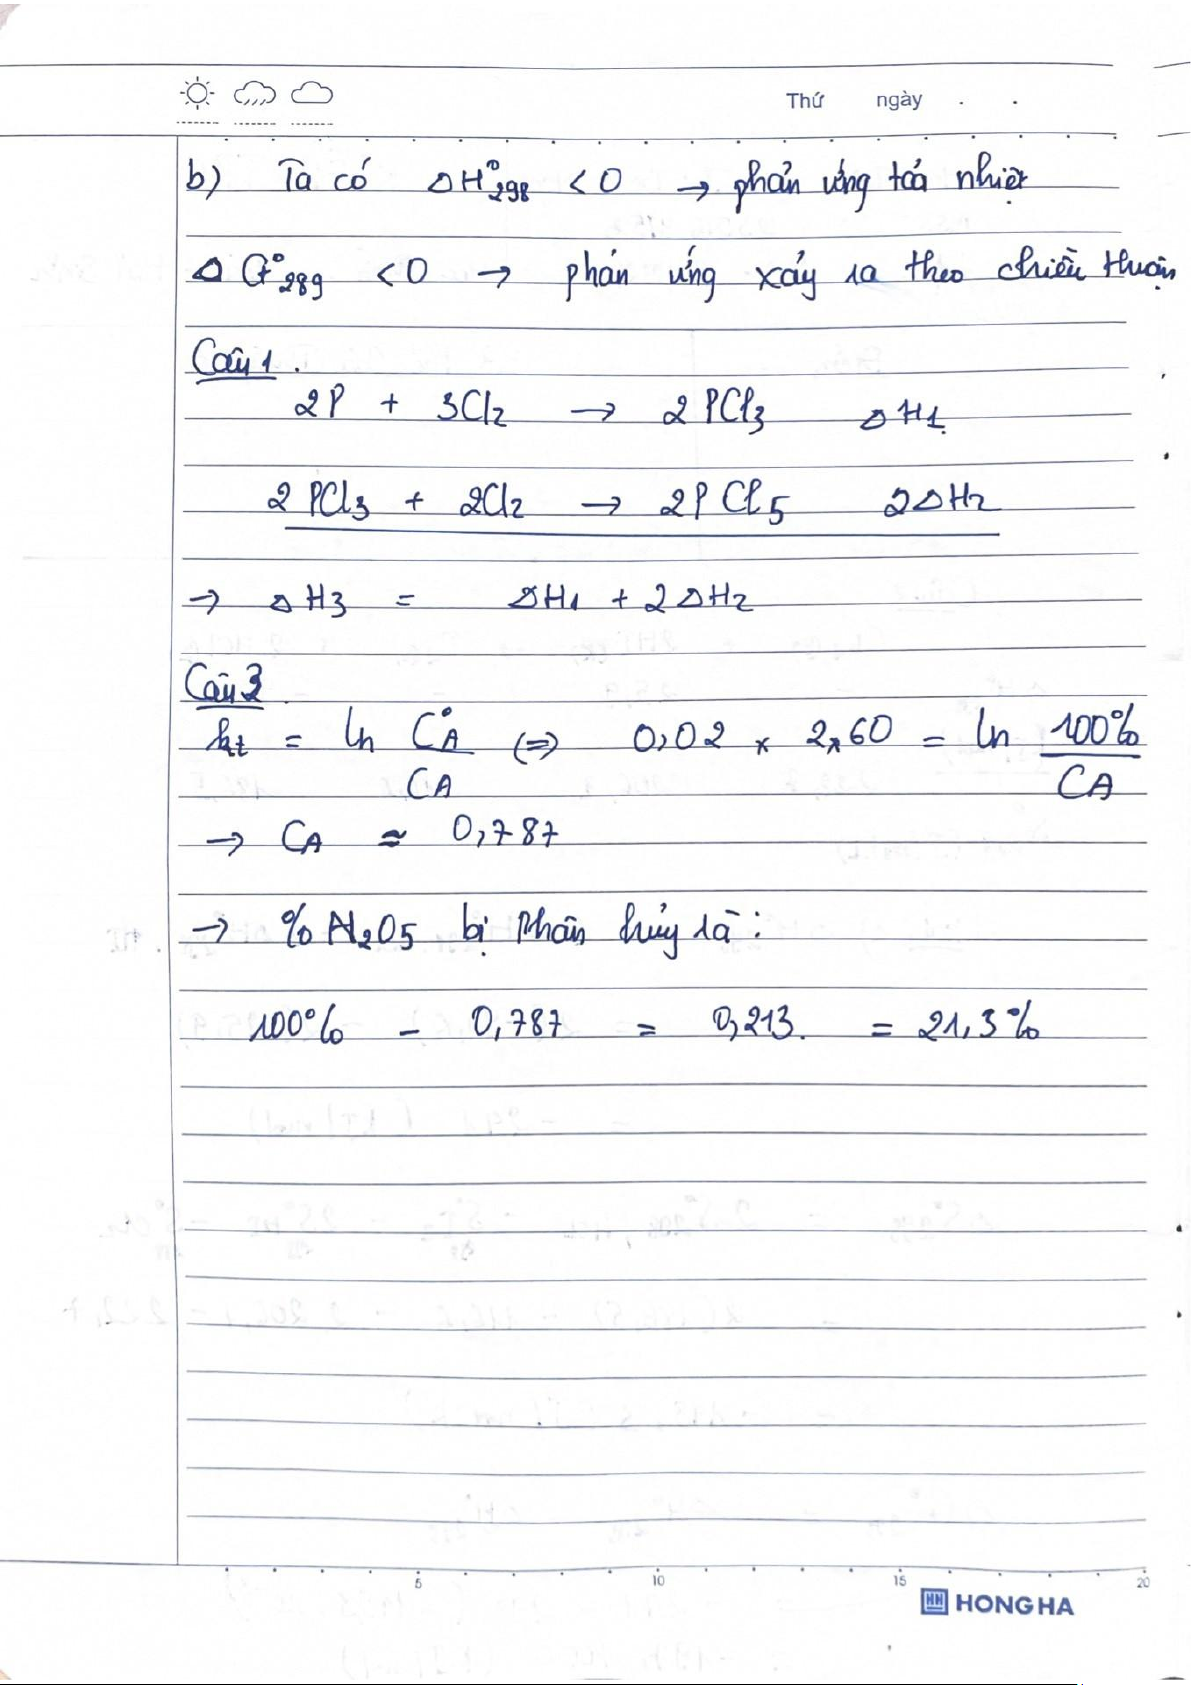 Thứ ngày . .
b) Ta có ΔH°298 < 0 → phản ứng toả nhiệt
ΔG°289 < 0 → phản ứng xảy ra theo chiều thuận
Câu 1.
2P + 3Cl2 → 2PCl3 ΔH1
2PCl3 + 2Cl2 → 2PCl5 2ΔH2
→ ΔH3 = ΔH1 + 2ΔH2
Câu 3
kt = ln C°A / CA (=) 0,02 × 2×60 = ln 100% / CA
→ CA ≈ 0,787
→ %N2O5 bị Phân hủy là:
100% - 0,787 = 0,213. = 21,3%
5 10 15 20
HONG HA